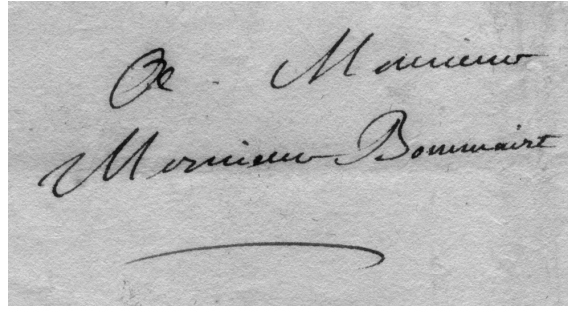 A Monsieur
Monsieur Bommairt